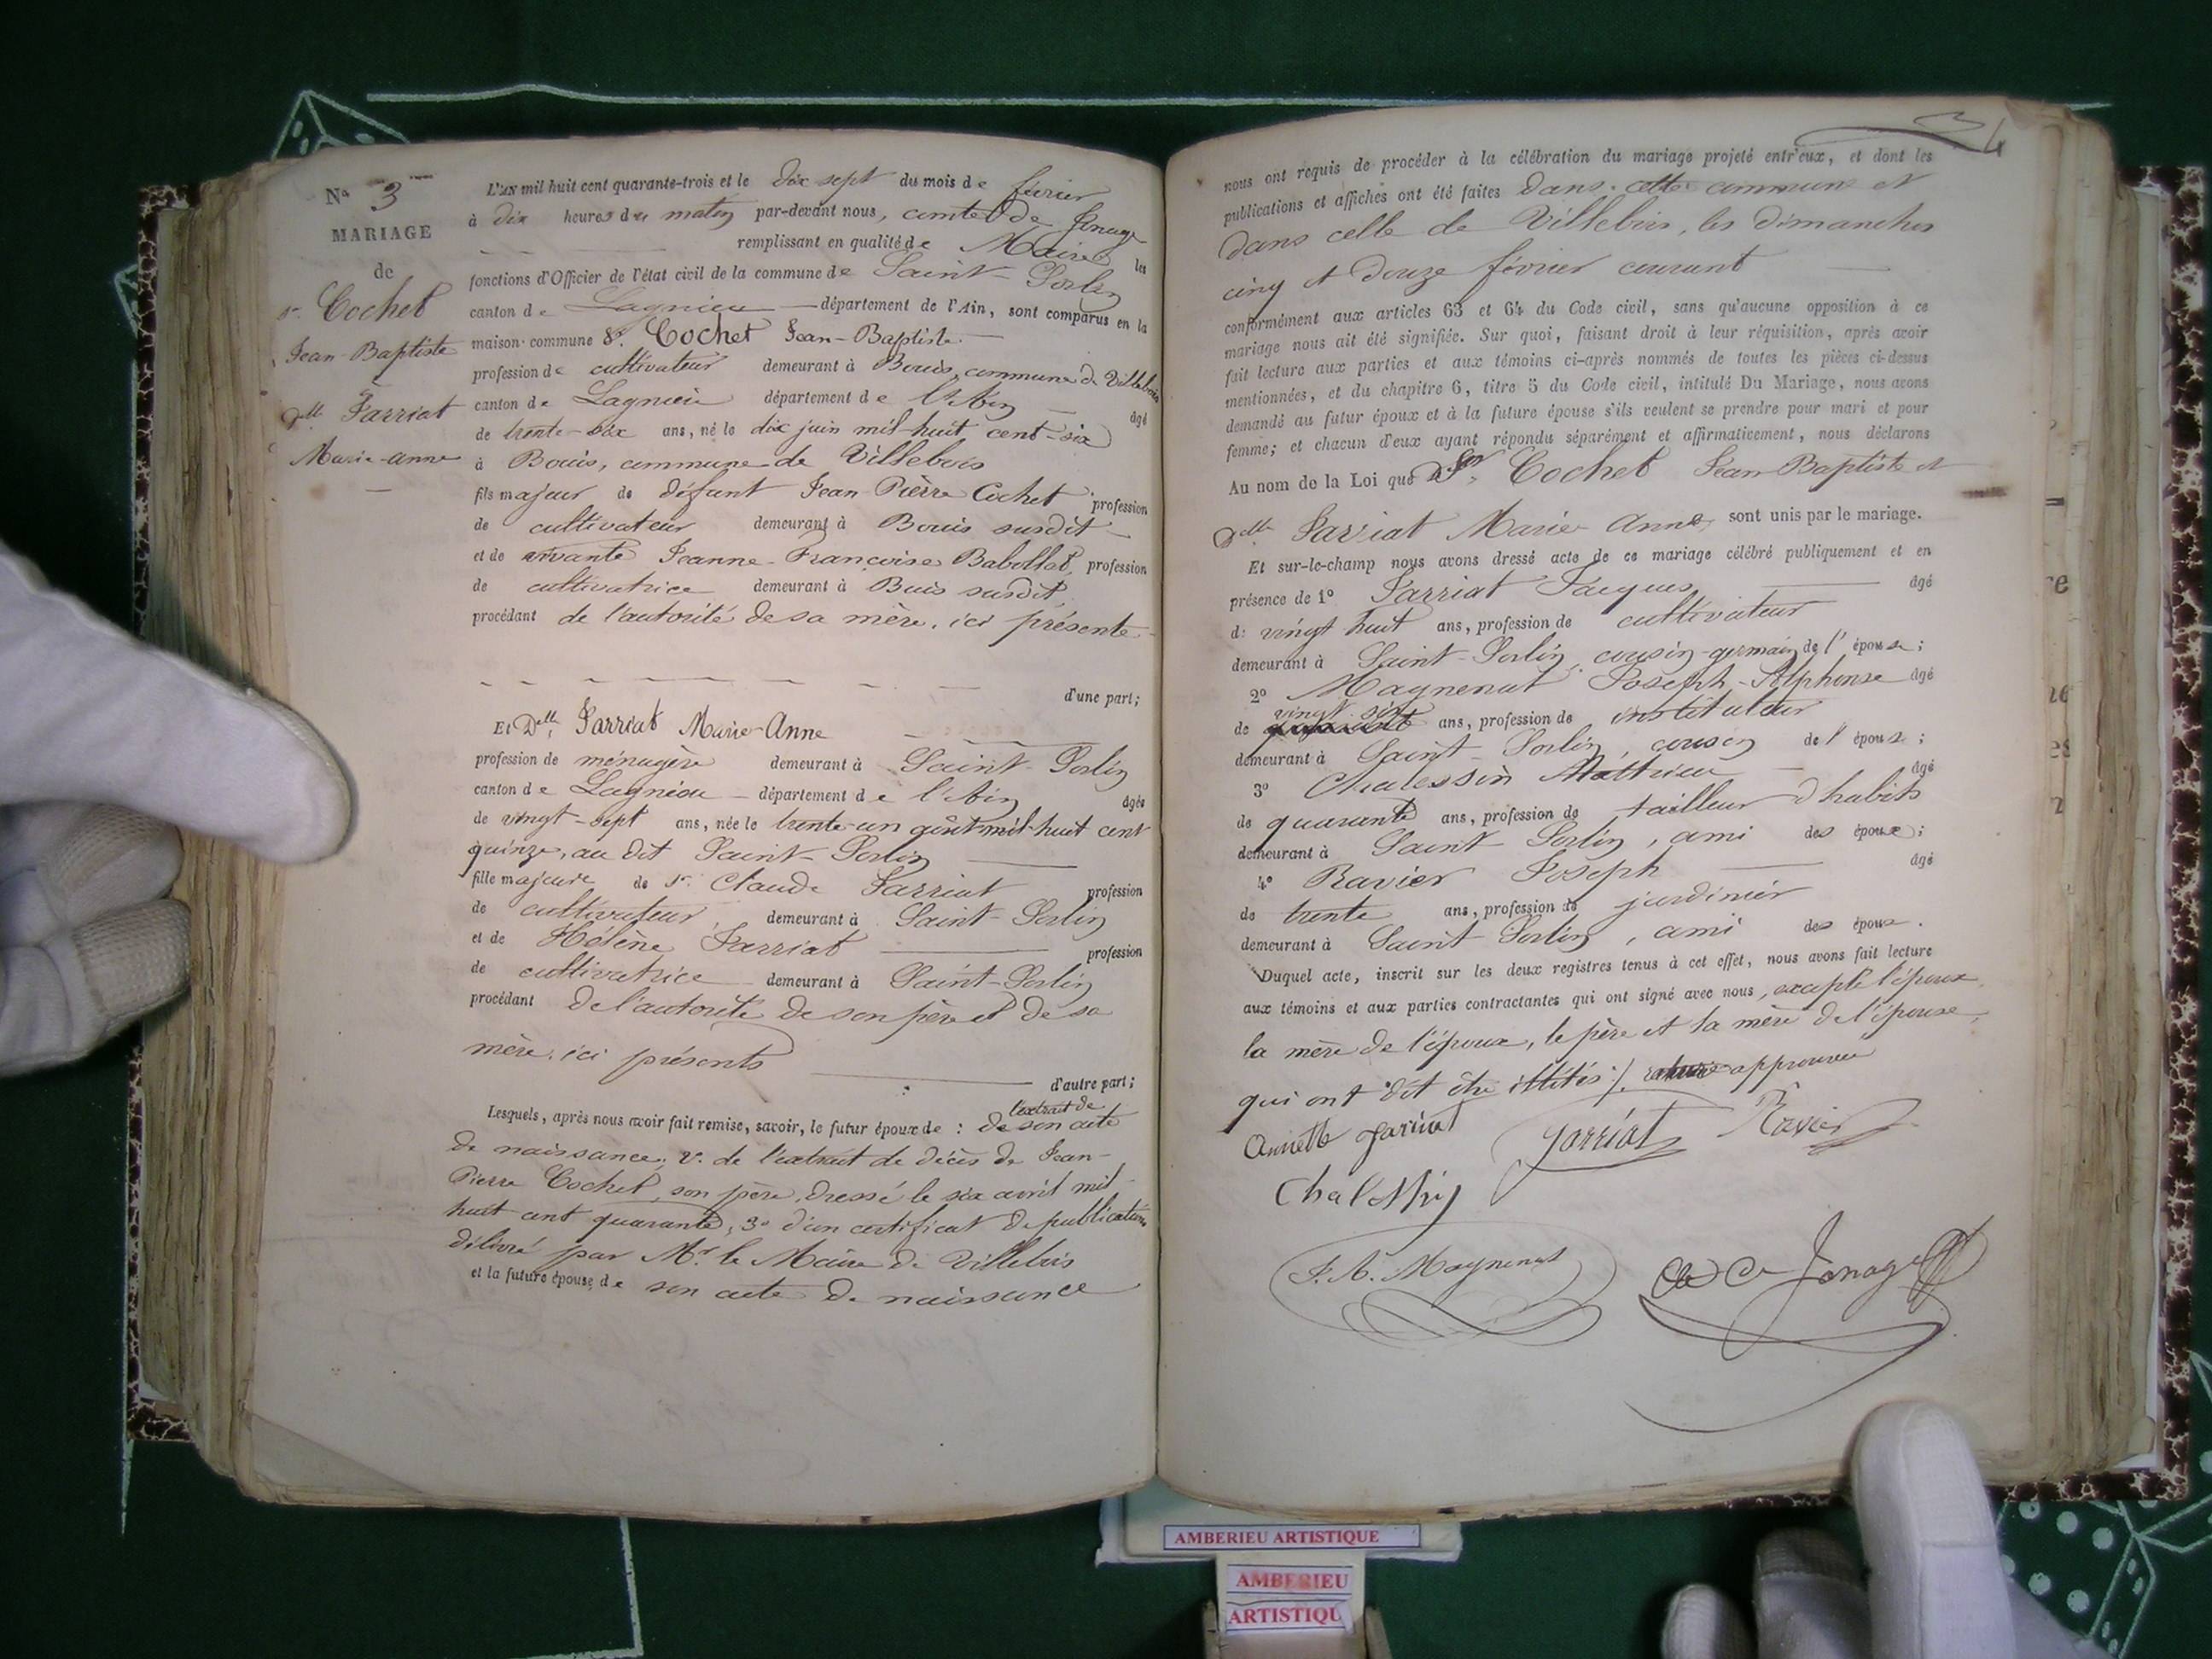 N° 3
MARIAGE
de
Sr. Cochet
Jean-Baptiste
Dlle Jarriat
Marie-anne
L'AN mil huit cent quarante-trois et le dix sept du mois de février
à dix heures du matin par-devant nous, comte de Jonage
remplissant en qualité de Maire les
fonctions d'Officier de l'état civil de la commune de Saint-Sorlin
canton de Lagnieu département de l'Ain, sont comparus en la
maison commune Sr. Cochet Jean-Baptiste
profession de cultivateur demeurant à Bouis, commune de Villebois
canton de Lagnieu département de l'Ain âgé
de trente-six ans, né le dix juin mil-huit cent-six
à Bouis, commune de Villebois
fils majeur de défunt Jean-Pierre Cochet profession
de cultivateur demeurant à Bouis susdit
et de vivante Jeanne-Françoise Babollat profession
de cultivatrice demeurant à Buis susdit
procédant de l'autorité de sa mère, ici présente
d'une part;
Et Dlle, Jarriat Marie-Anne
profession de ménagère demeurant à Saint-Sorlin
canton de Lagnieu département de l'Ain âgée
de vingt-sept ans, née le trente-un août mil-huit cent
quinze, au dit Saint-Sorlin
fille majeure de Sr. Claude Jarriat profession
de cultivateur demeurant à Saint-Sorlin
et de Hélène Jarriat profession
de cultivatrice demeurant à Saint-Sorlin
procédant de l'autorité de son père et de sa
mère, ici présents
d'autre part;
l'extrait de
Lesquels, après nous avoir fait remise, savoir, le futur époux de : de son acte
de naissance; 2° de l'extrait de décès de Jean-
Pierre Cochet, son père, dressé le six avril mil
huit cent quarante, 3° d'un certificat de publication
délivré par Mr. le Maire de Villebois
et la future épouse, de son acte de naissance
nous ont requis de procéder à la célébration du mariage projeté entr'eux, et dont les
publications et affiches ont été faites dans cette commune et
dans celle de Villebois, les dimanches
cinq et douze février courant
conformément aux articles 63 et 64 du Code civil, sans qu'aucune opposition à ce
mariage nous ait été signifiée. Sur quoi, faisant droit à leur réquisition, après avoir
fait lecture aux parties et aux témoins ci-après nommés de toutes les pièces ci-dessus
mentionnées, et du chapitre 6, titre 5 du Code civil, intitulé Du Mariage, nous avons
demandé au futur époux et à la future épouse s'ils veulent se prendre pour mari et pour
femme; et chacun d'eux ayant répondu séparément et affirmativement, nous déclarons
Au nom de la Loi que Sr. Cochet Jean-Baptiste et
Dlle Jarriat Marie-Anne, sont unis par le mariage.
Et sur-le-champ nous avons dressé acte de ce mariage célébré publiquement et en
présence de 1° Jarriat Jacques âgé
de vingt huit ans, profession de cultivateur
demeurant à Saint-Sorlin, cousin-germain de l'épouse;
2° Magnenat Joseph-Alphonse âgé
de vingt six ans, profession de instituteur
demeurant à Saint-Sorlin, cousin de l'épouse;
3° Chalessin Matthieu âgé
de quarante ans, profession de tailleur d'habits
demeurant à Saint-Sorlin, ami des époux;
4° Ravier Joseph âgé
de trente ans, profession de jardinier
demeurant à Saint Sorlin, ami des époux.
Duquel acte, inscrit sur les deux registres tenus à cet effet, nous avons fait lecture
aux témoins et aux parties contractantes qui ont signé avec nous, excepté l'époux,
la mère de l'époux, le père et la mère de l'épouse,
qui ont dit être illitérés approuvée
Annette Jarriat Jarriat Ravier
Chalessin
J. A. Magnenat Cte de Jonage
AMBERIEU ARTISTIQUE
AMBERIEU
ARTISTIQU